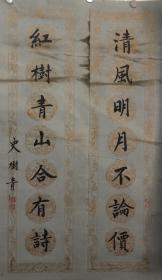 清風明月不論價
紅樹青山合有詩
史樹青